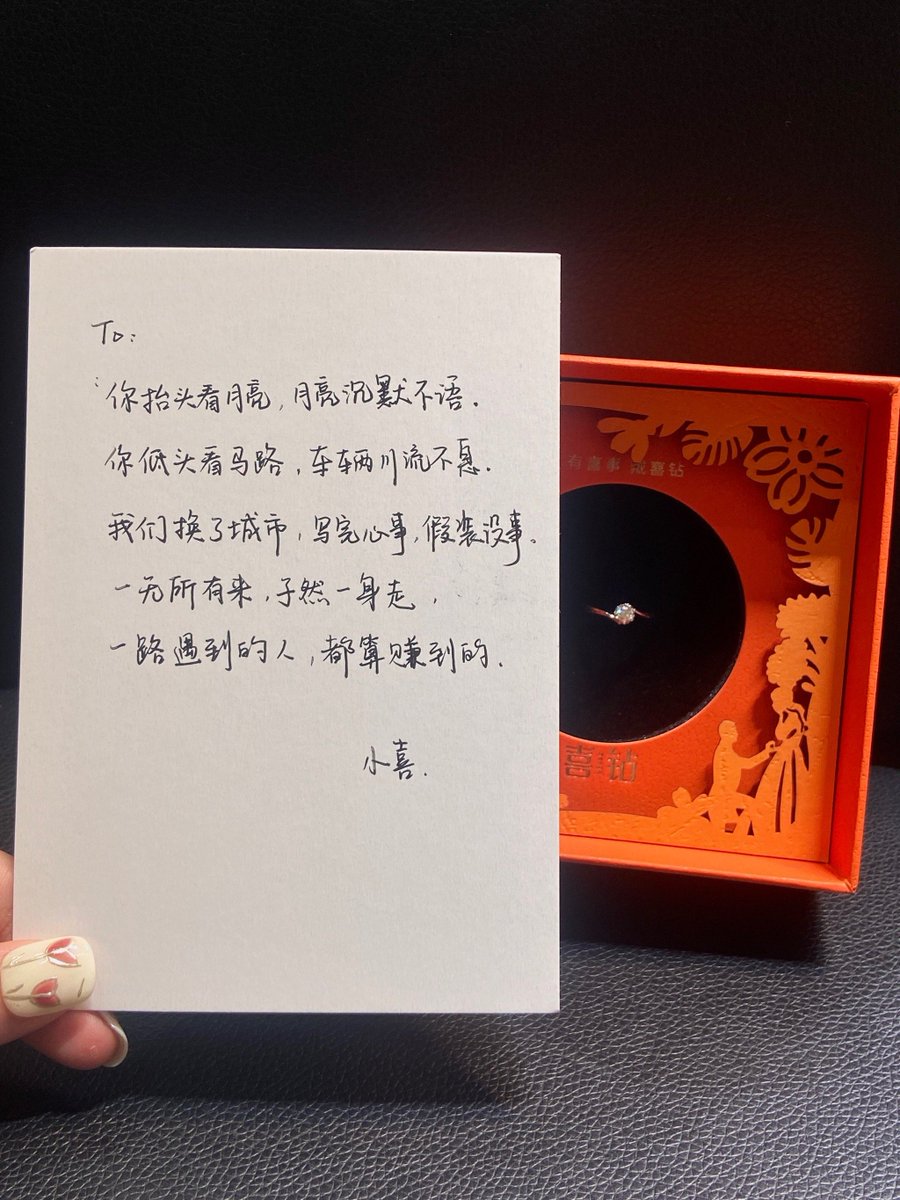 To:
你抬头看月亮,月亮沉默不语.
你低头看马路,车辆川流不息.
我们换了城市,写完心事,假装没事.
一无所有来,孑然一身走,
一路遇到的人,都算赚到的.
小喜.
有喜事 戒喜钻
喜钻